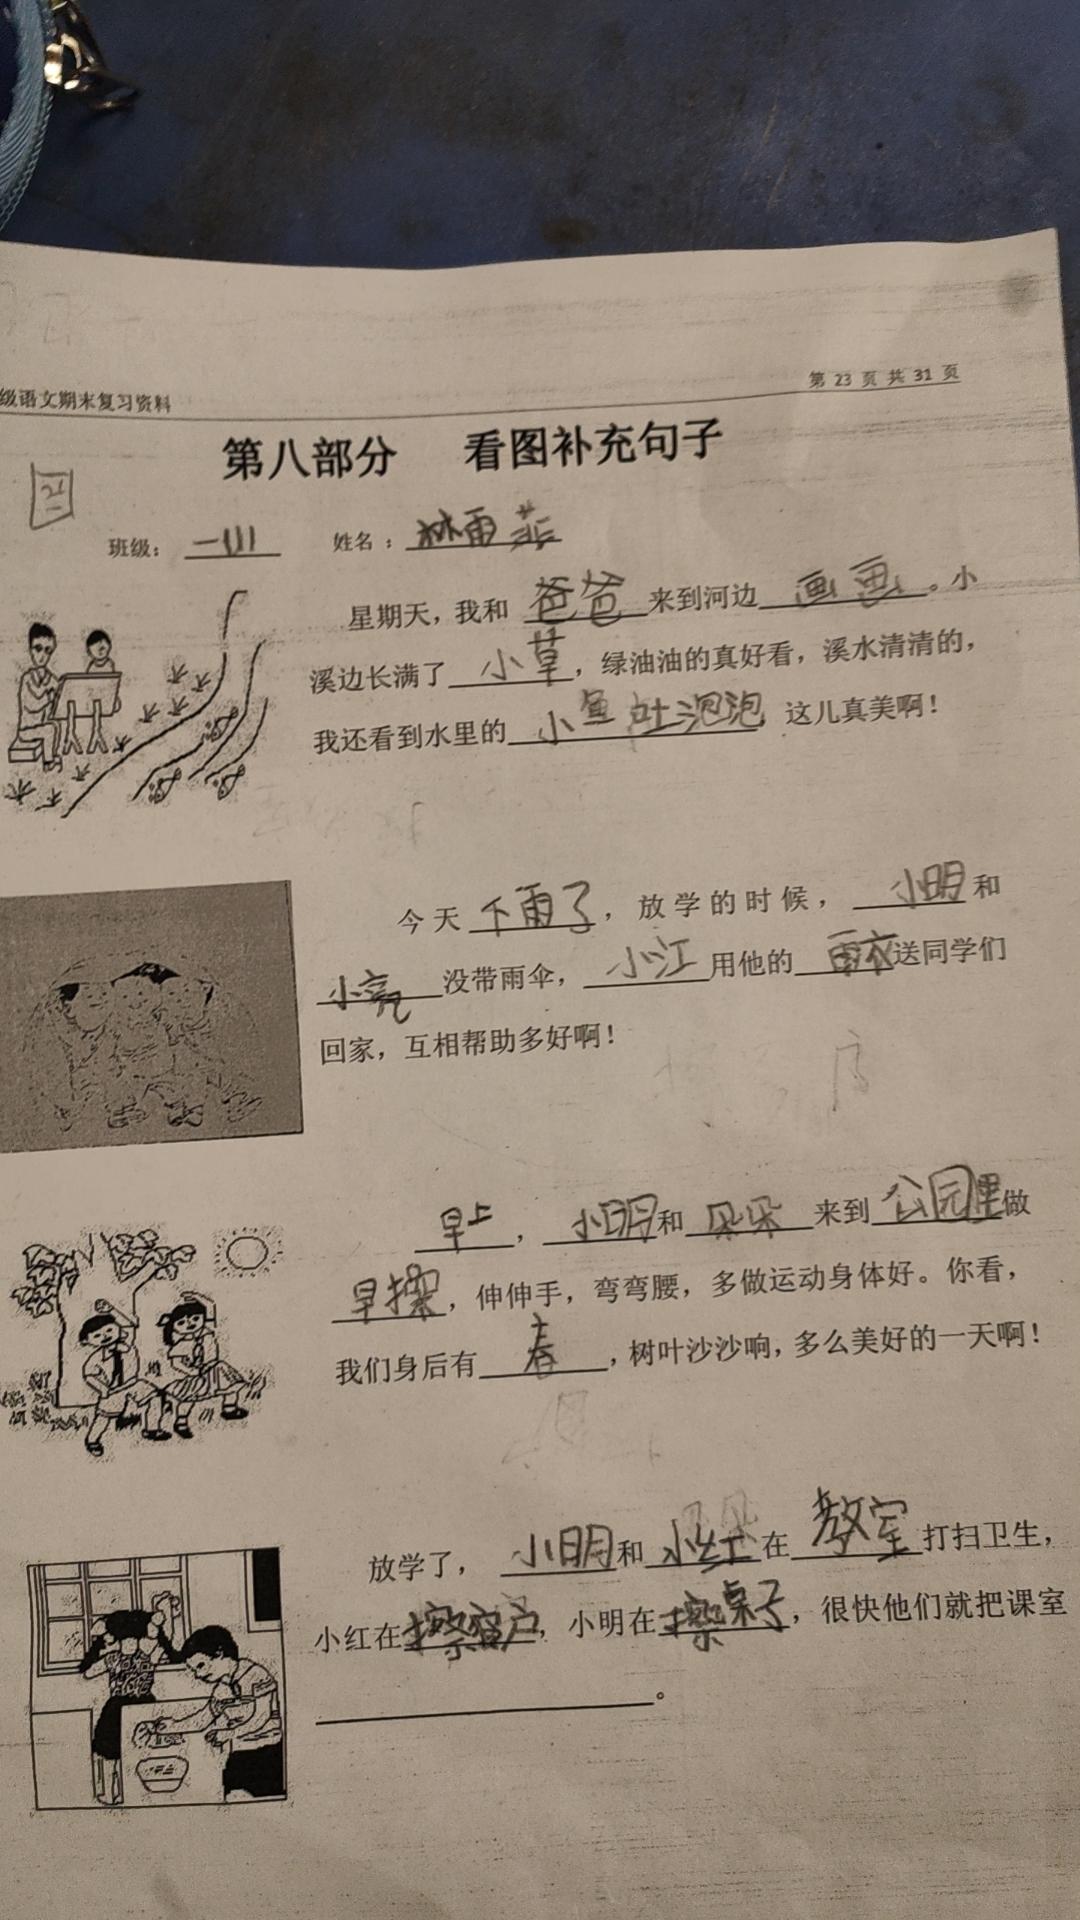 级语文期末复习资料
第 23 页 共 31 页
第八部分 看图补充句子
班级： 一111 姓名：林雨菲
星期天，我和 爸爸 来到河边 画画 。小
溪边长满了 小草 ，绿油油的真好看，溪水清清的，
我还看到水里的 小鱼吐泡泡 这儿真美啊！
今天 下雨了 ，放学的时候， 小明 和
小亮 没带雨伞， 小江 用他的 雨衣 送同学们
回家，互相帮助多好啊！
早上 ， 小明 和 朵朵 来到 公园里 做
早操 ，伸伸手，弯弯腰，多做运动身体好。你看，
我们身后有 春 ，树叶沙沙响，多么美好的一天啊！
放学了， 小明 和 小红 在 教室 打扫卫生，
小红在 擦窗户 ，小明在 擦桌子 ，很快他们就把课室
。